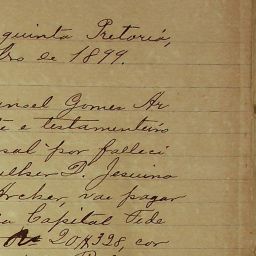 quinta Pretoria,
bro de 1899.
anoel Gomes Ar
te e testamenteiro
sal por falleci
ulher D. Jesuina
Archer, vae pagar
a Capital Fede
20$328, cor